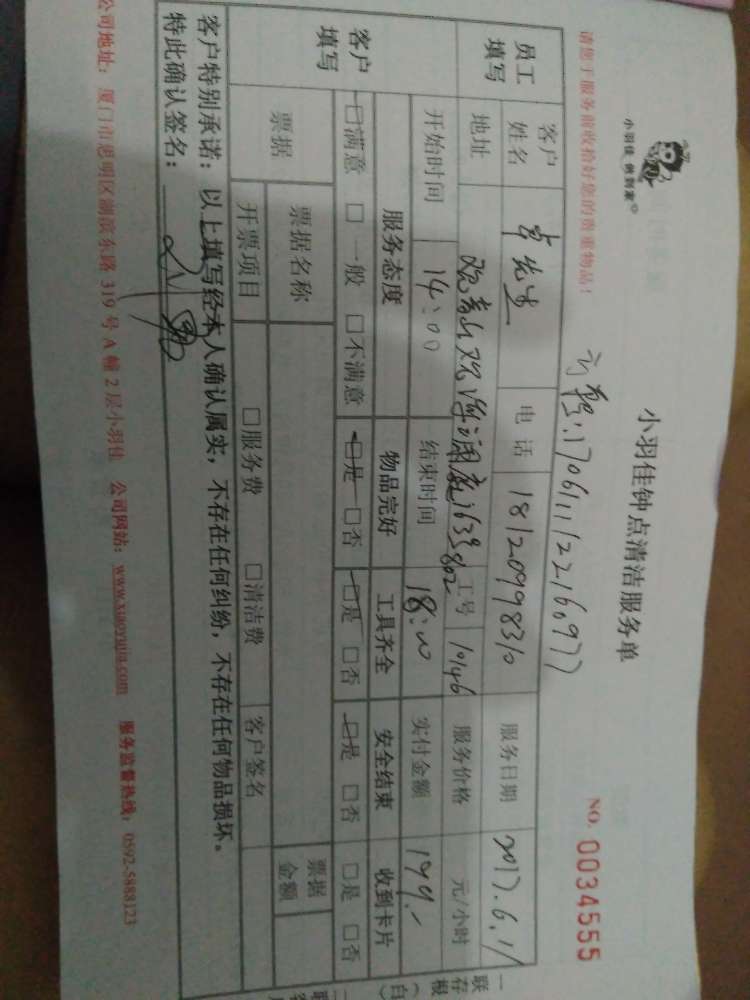 小羽佳 帮到家
小羽佳钟点清洁服务单
NO. 0034555
请您于服务前收拾好您的贵重物品！
员工填写
客户姓名
先生
电话
18120998310
服务日期
2017.6.11
地址
工号
10146
服务价格
元/小时
开始时间
14:00
结束时间
18:00
实付金额
199.-
客户填写
服务态度 物品完好 工具齐全 安全结束 收到卡片
□满意 □一般 □不满意 □是 □否 □是 □否 □是 □否 □是 □否
票据
票据名称
票据金额
开票项目
□服务费 □清洁费
客户签名
客户特别承诺：以上填写经本人确认属实，不存在任何纠纷，不存在任何物品损坏。
特此确认签名：
公司地址：厦门市思明区湖滨东路 319 号 A 幢 2 层小羽佳 公司网站：www.xiaoyujia.com 服务监督热线：0592-5888123
一联存根（白）